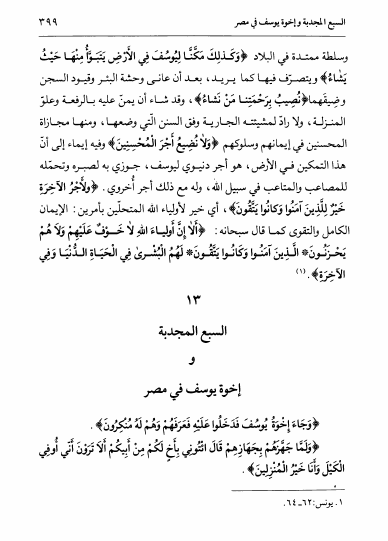 السبع المجدبة و إخوة يوسف في مصر ٣٩٩
وسلطة ممتدة في البلاد ﴿وَكَذلِكَ مَكَّنَّا لِيُوسُفَ فِي الأَرْضِ يَتَبَوَّأُ مِنْهَا حَيْثُ
يَشَاءُ﴾ ويتصرّف فيها كما يريد، بعد أن عانى وحشة البئر وقيود السجن
وضيقهما ﴿نُصِيبُ بِرَحْمَتِنا مَنْ نَشاءُ﴾، وقد شاء أن يمنّ عليه بالرفعة وعلوّ
المنزلة، ولا رادّ لمشيئته الجارية وفق السنن الّتي وضعها، ومنها مجازاة
المحسنين في إيمانهم وسلوكهم ﴿وَلاَ نُضِيعُ أَجْرَ الْمُحْسِنِينَ﴾ وفيه إيماء إلى أنّ
هذا التمكين في الأرض، هو أجر دنيوي ليوسف، جوزي به لصبره وتحمّله
للمصاعب والمتاعب في سبيل الله، وله مع ذلك أجر أُخروي. ﴿وَلأَجْرُ الآخِرَةِ
خَيْرٌ لِلَّذِينَ آمَنُوا وَكَانُوا يَتَّقُونَ﴾، أي خير لأولياء الله المتحلّين بأمرين: الإيمان
الكامل والتقوى كما قال سبحانه: ﴿أَلاَ إِنَّ أَولِيَاءَ اللهِ لاَ خَوْفٌ عَلَيْهِمْ وَلاَ هُمْ
يَحْزَنُونَ* الَّذِينَ آمَنُوا وَكَانُوا يَتَّقُونَ* لَهُمُ الْبُشْرى فِي الْحَيَاةِ الدُّنْيَا وَفِي
الآخِرَةِ﴾.(١)
١٣
السبع المجدبة
و
إخوة يوسف في مصر
﴿وَجَاءَ إِخْوَةُ يُوسُفَ فَدَخَلُوا عَلَيْهِ فَعَرَفَهُمْ وَهُمْ لَهُ مُنْكِرُونَ﴾.
﴿وَلَمَّا جَهَّزَهُمْ بِجَهَازِهِمْ قَالَ ائْتُونِي بِأَخٍ لَكُمْ مِنْ أَبِيكُمْ أَلاَ تَرَوْنَ أَنِّي أُوفِي
الْكَيْلَ وَأَنَا خَيْرُ الْمُنْزِلِينَ﴾.
١. يونس: ٦٢-٦٤.